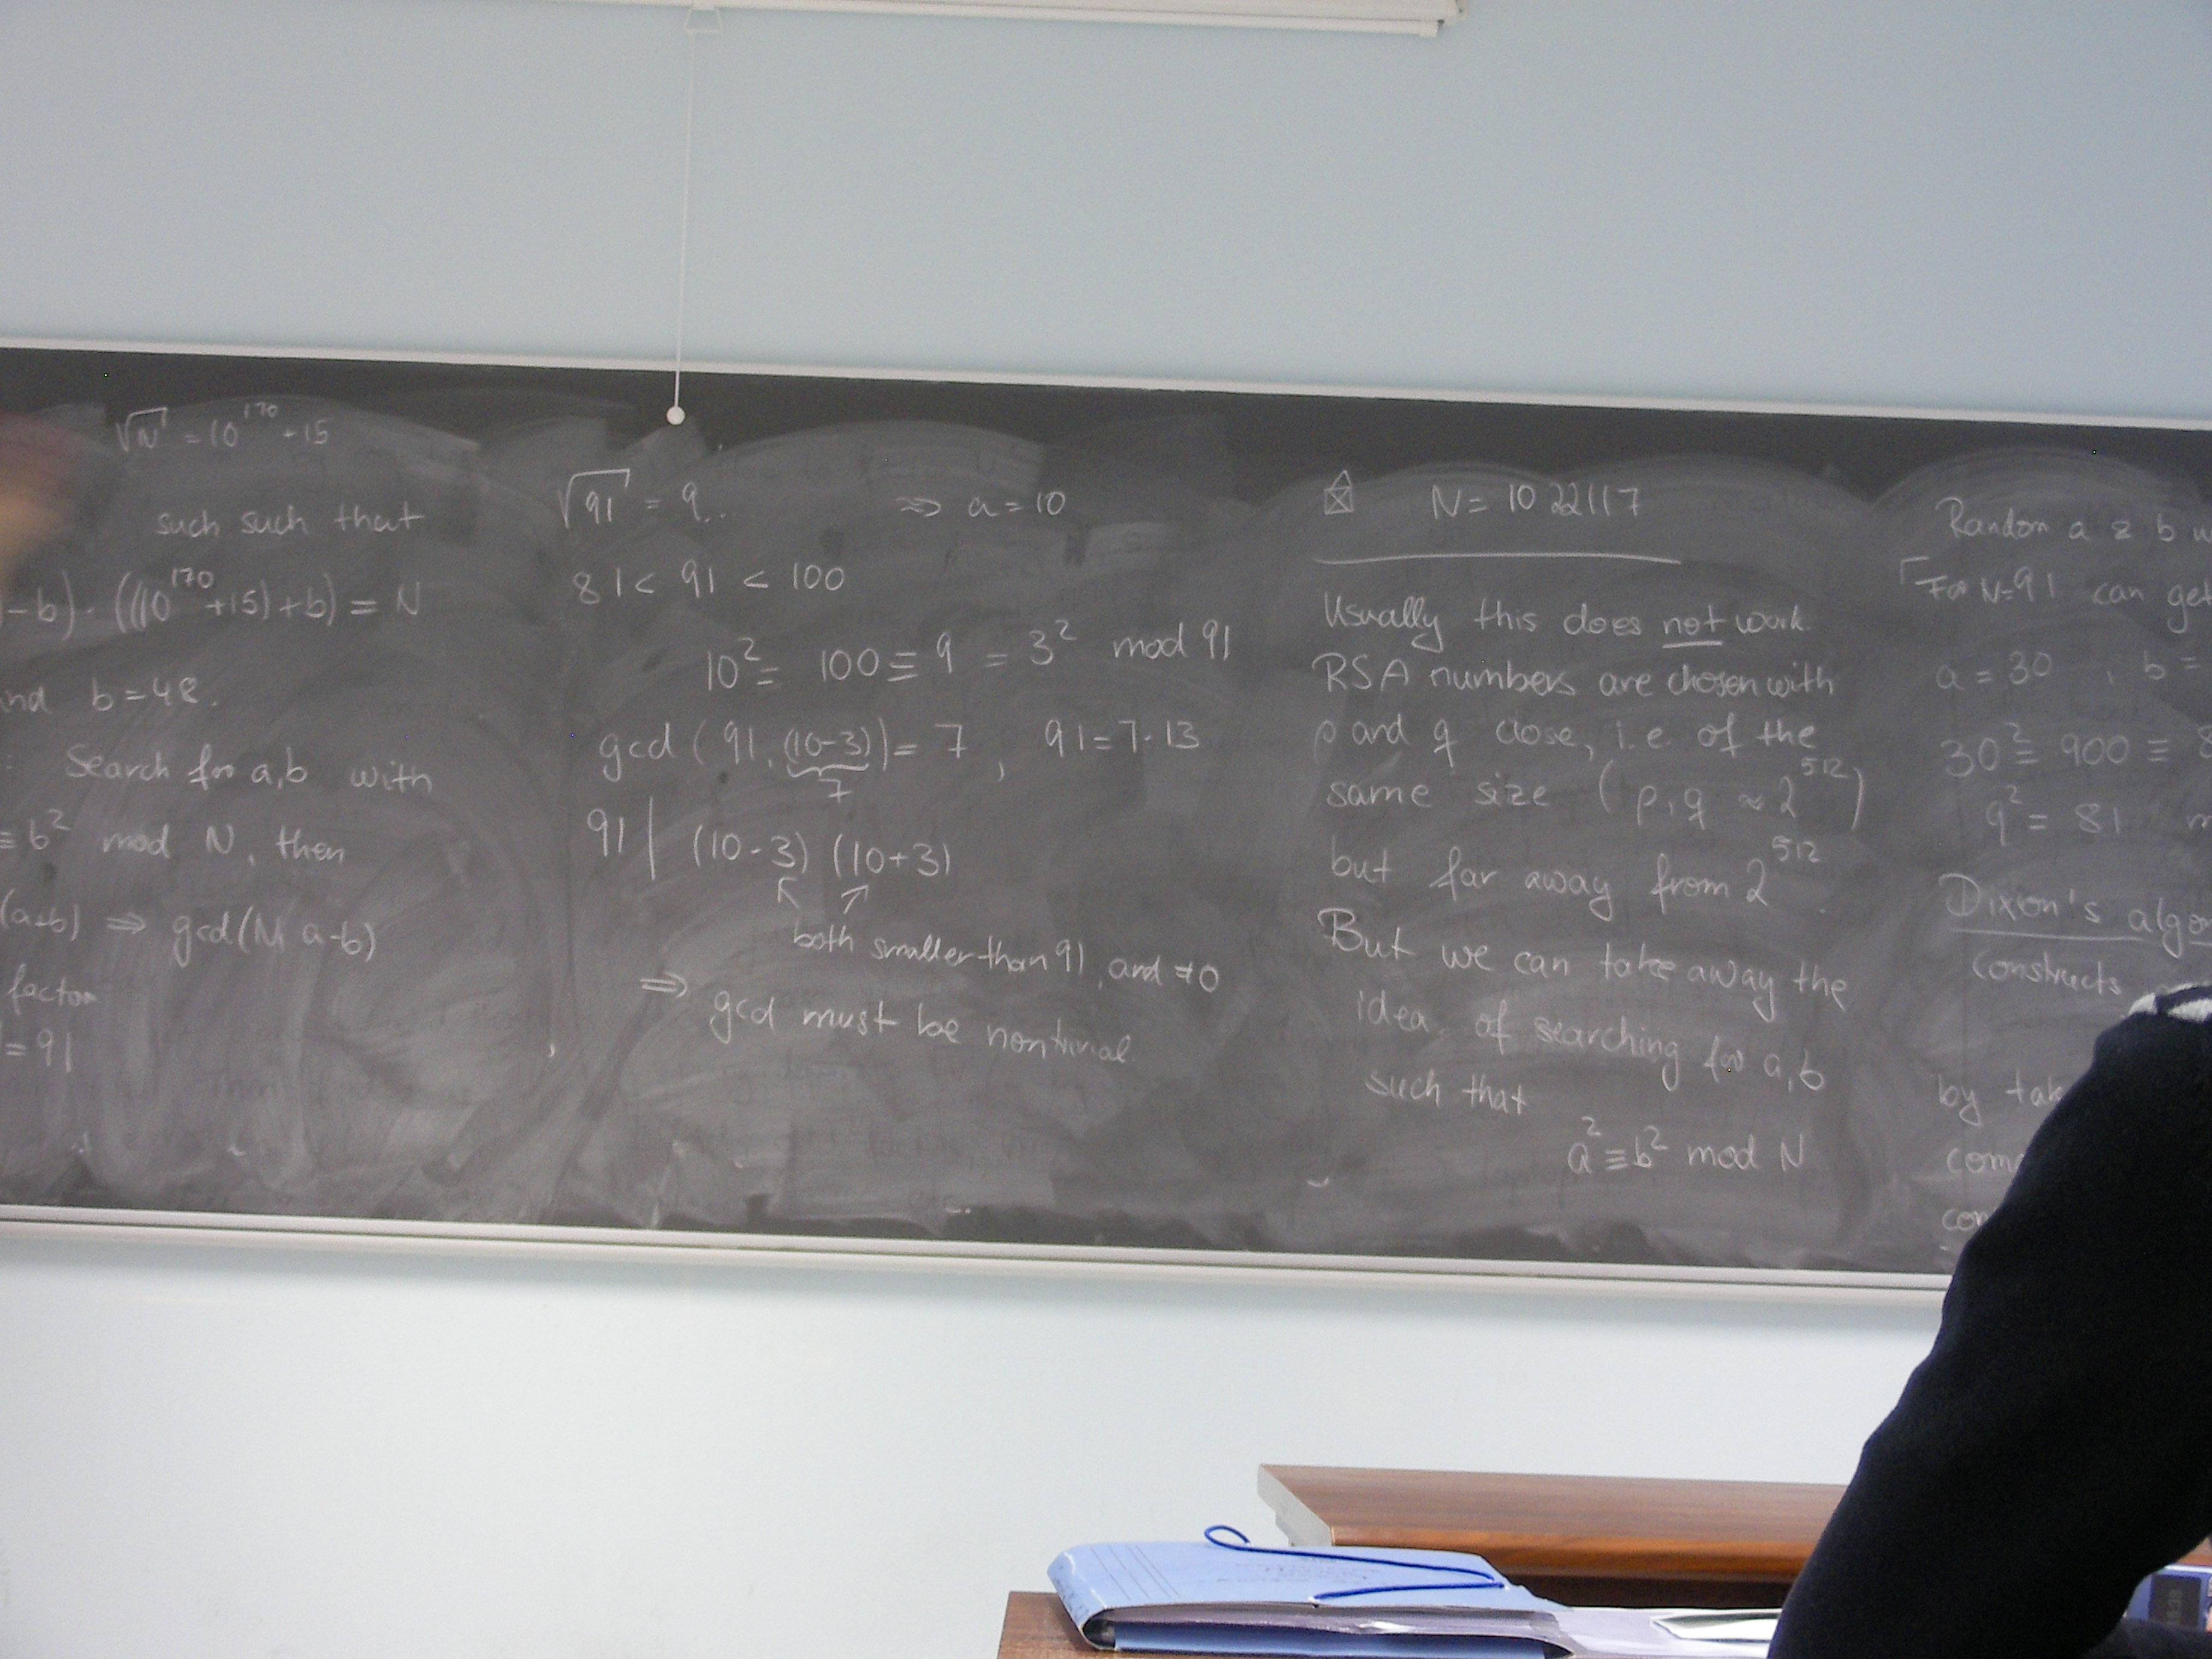 √N = 10^170 + 15
such such that
-b)·((10^170+15)+b) = N
nd b=48.
Search for a,b with
≡ b² mod N, then
(a+b) ⇒ gcd(N, a-b)
factor
=91
√91 = 9... ⇒ a=10
81 < 91 < 100
10² = 100 ≡ 9 = 3² mod 91
gcd(91,(10-3)) = 7, 91=7·13
7
91 | (10-3) (10+3)
both smaller than 91, and ≠0
⇒ gcd must be nontrivial.
N = 10 22117
Usually this does not work.
RSA numbers are chosen with
p and q close, i.e. of the
same size (p,q ≈ 2^512)
but far away from 2^512.
But we can take away the
idea of searching for a,b
such that
a² ≡ b² mod N
Random a & b w
For N=91 can get
a = 30, b =
30² = 900 ≡ 8
9² = 81 m
Dixon's algo
constructs
by tak
com
con